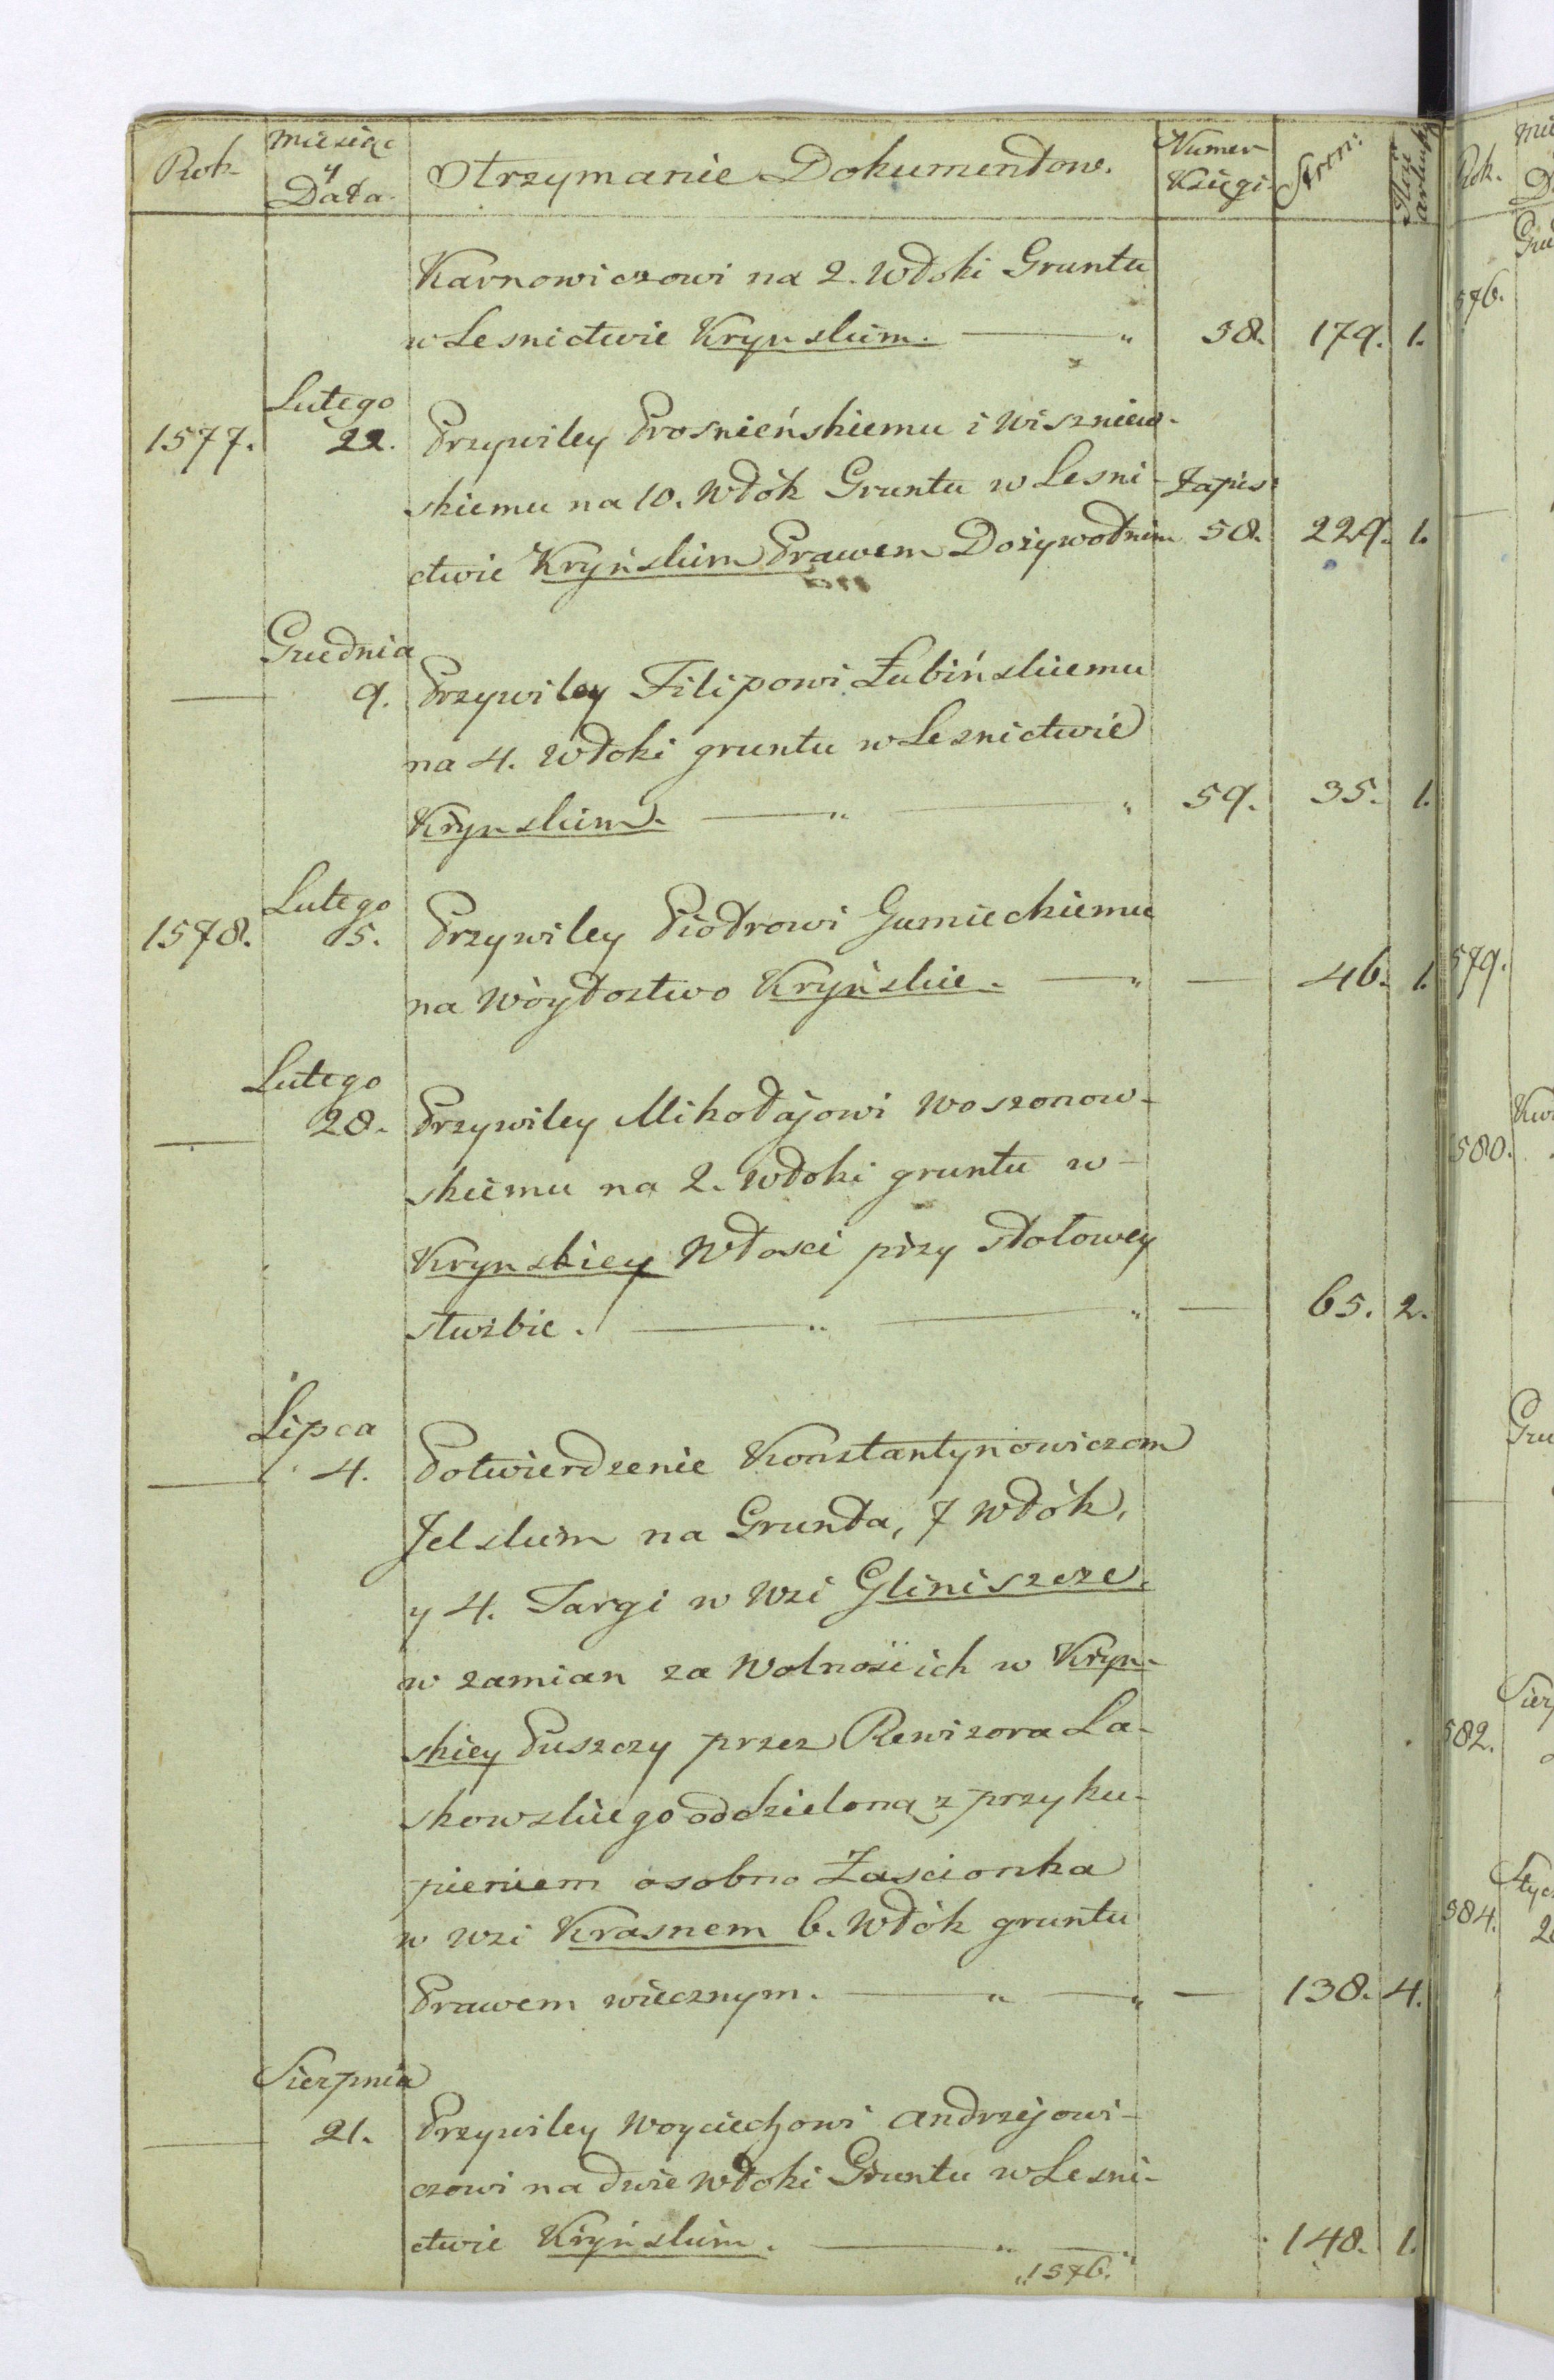 Rok
miesiąc
y
Data.
Otrzymanie Dokumentow.
Numer
Xsięgi
Stron:
Karnowiczowi na 2. włoki Gruntu
w Lesnictwie Krynskim. 58. 179. 1.
Lutego
1577. 22. Przywiley Prosnieńskiemu i Wiszniew-
skiemu na 10. włók Gruntu w Lesni- Zapis:
ctwie Kryńskim Prawem Dożywotnim 58. 229. 1.
Grudnia
— 9. Przywiley Filipowi Łubińskiemu
na 4. włoki gruntu w Lesnictwie
Krynskim. — „ — „ 59. 35. 1.
Lutego
1578. 5. Przywiley Piotrowi Gumieckiemu
na Wòytostwo Kryńskie. — „ — 46. 1.
Lutego
— 28. Przywiley Mikołajowi Woszonow-
skiemu na 2. włoki gruntu w-
Krynskiey Włosci przy stołowey
służbie. — „ — „ — 65. 2.
Lipca
— 4. Potwierdzenie Konstantynowiczom
Jelskim na Grunta, 7 włók,
y 4. Targi w wsi Gliniszcze,
w zamian za Wolność ich w Kryn-
skiey Puszczy przez Rewizora La-
skowskiego oddzieloną z przyku-
pieniem osobno Zascionka
w wsi Krasnem 6. włók gruntu
Prawem wiecznym. — „ — „ — 138. 4.
Sierpnia
— 21. Przywiley Woyciechowi Andrzejowi-
czowi na dwie włoki Gruntu w Lesni-
ctwie Kryńskim. — „ — „ 148. 1.
„1576.„
Rok.
576.
579.
580.
582.
584.